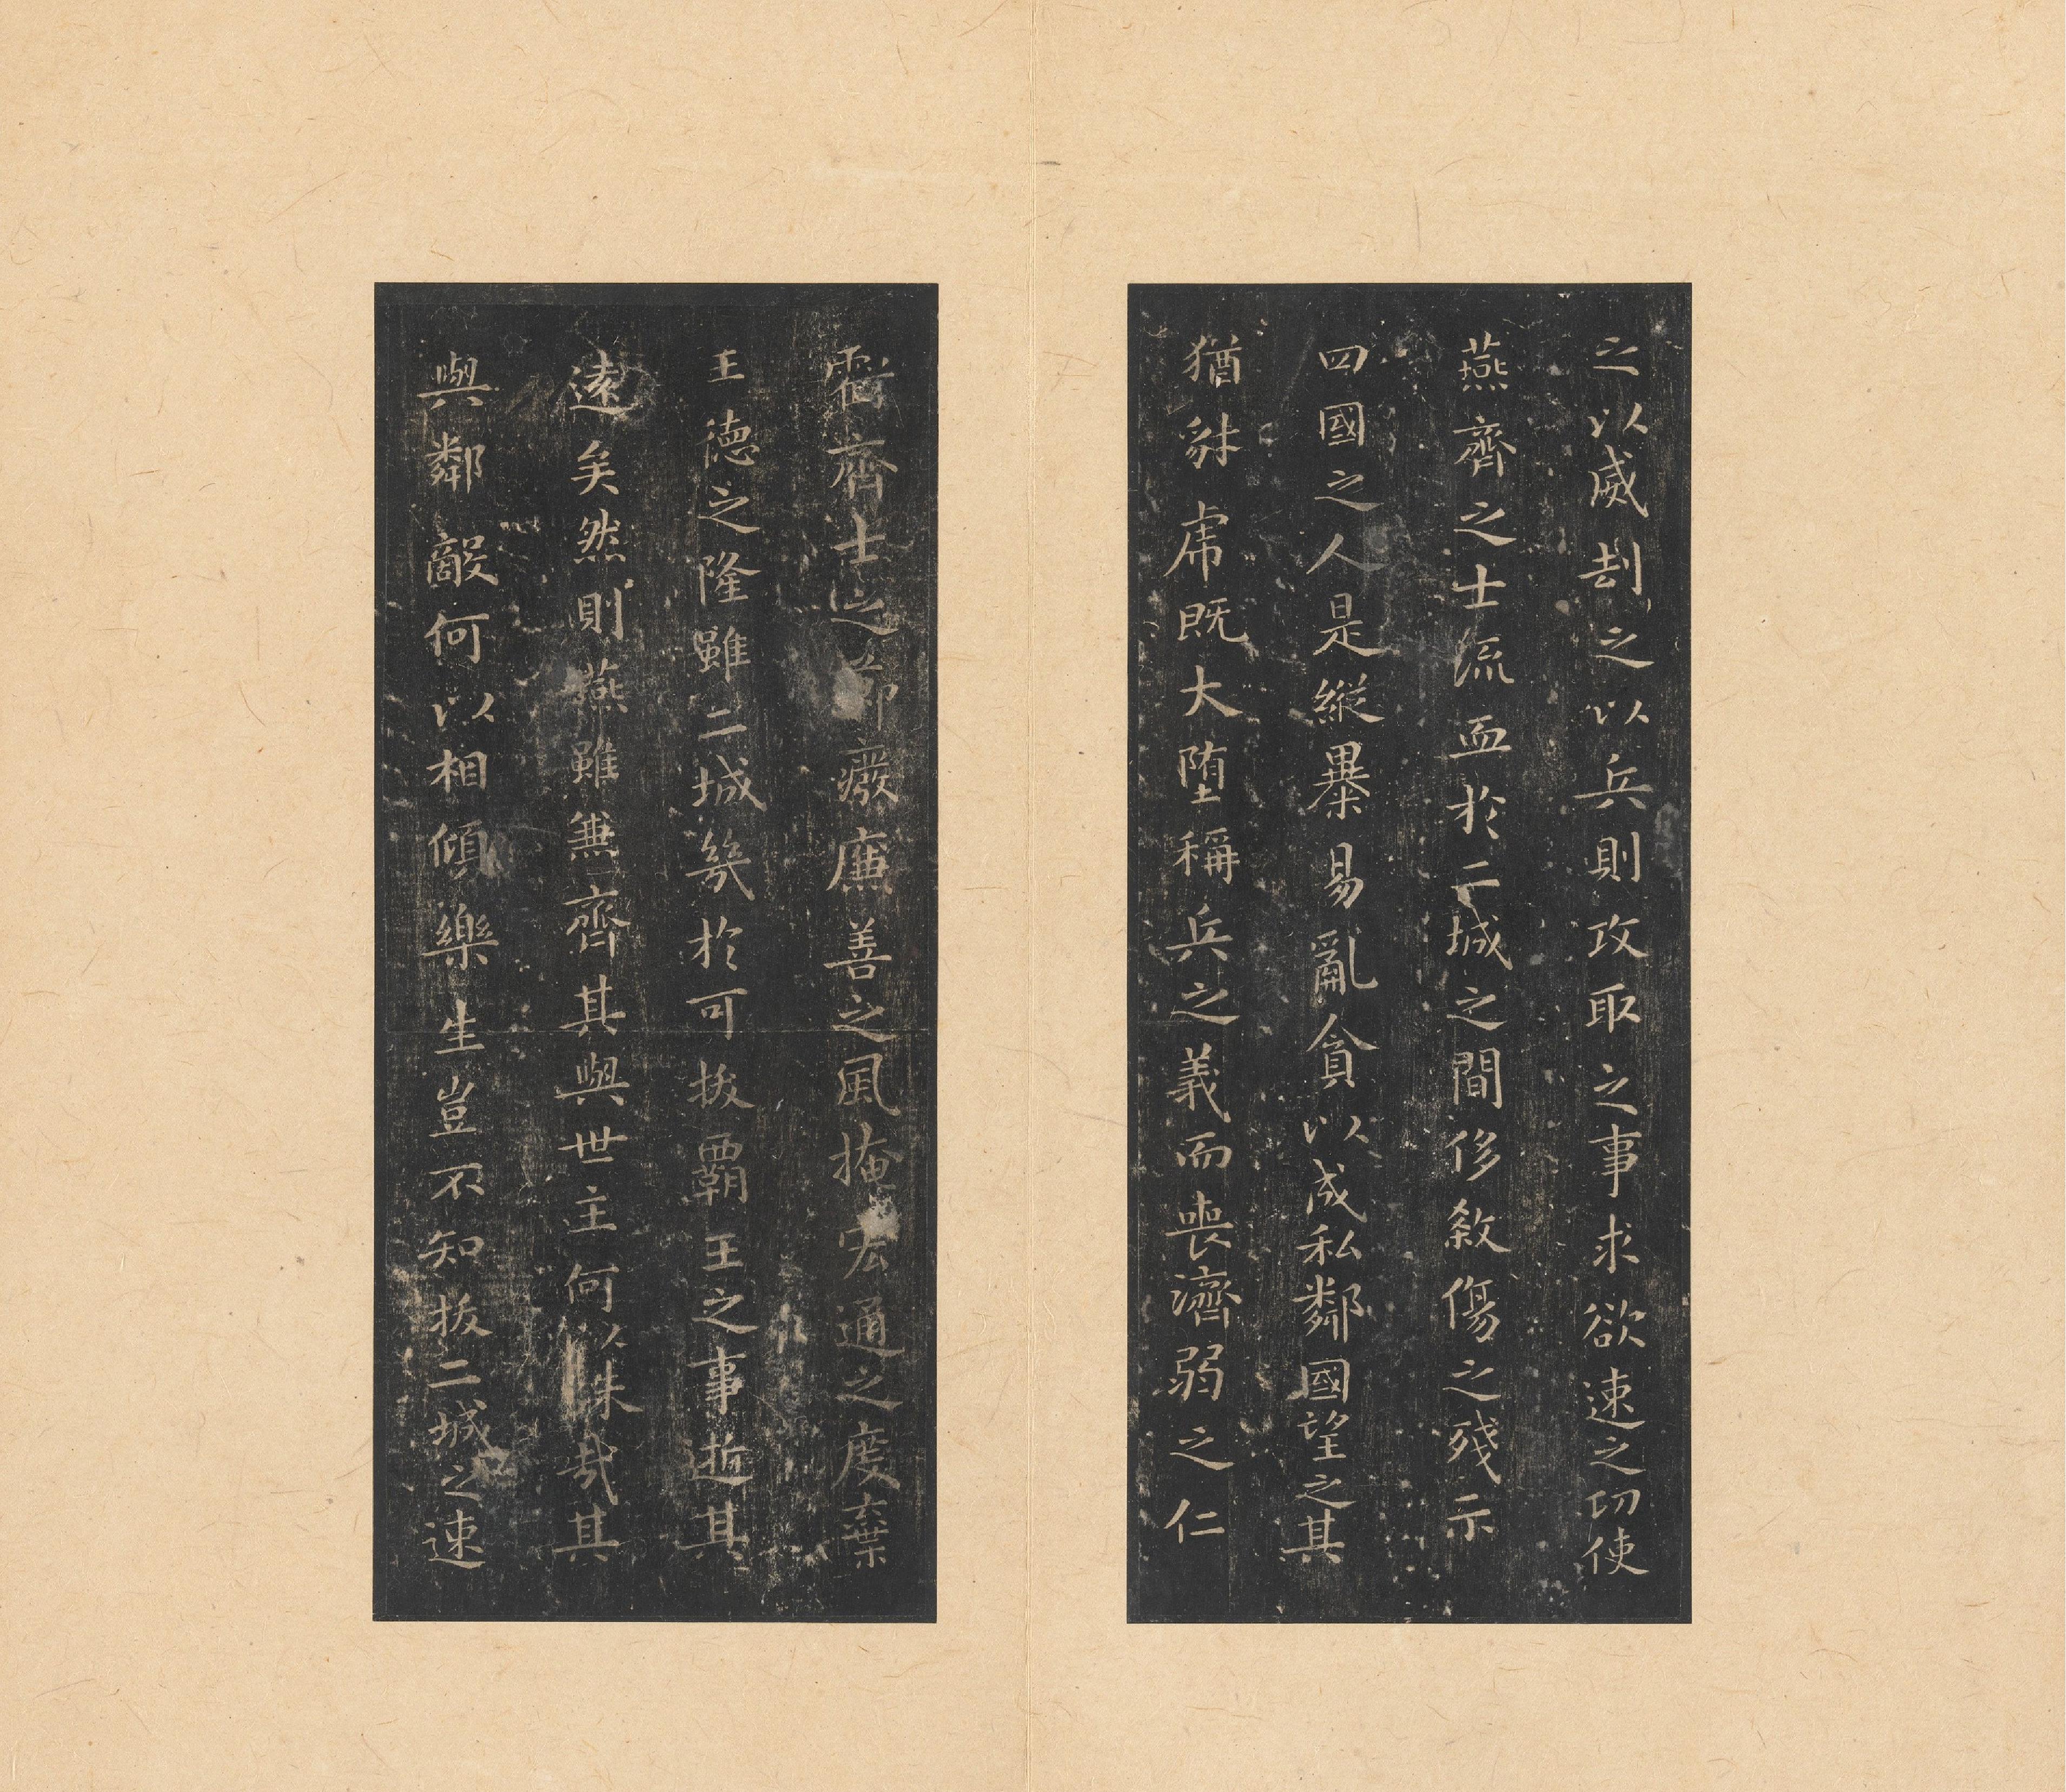 之以威劫之以兵則攻取之事求欲速之功使
燕齊之士流血於二城之間侈殺傷之殘示
四國之人是縱暴易亂貪以成私鄰國望之其
猶豺虎既大墮稱兵之義而喪濟弱之仁
虧齊士之節癈廉善之風掩宏通之度棄
王德之隆雖二城幾於可拔霸王之事逝其
遠矣然則燕雖兼齊其與世主何以殊哉其
與鄰敵何以相傾樂生豈不知拔二城之速